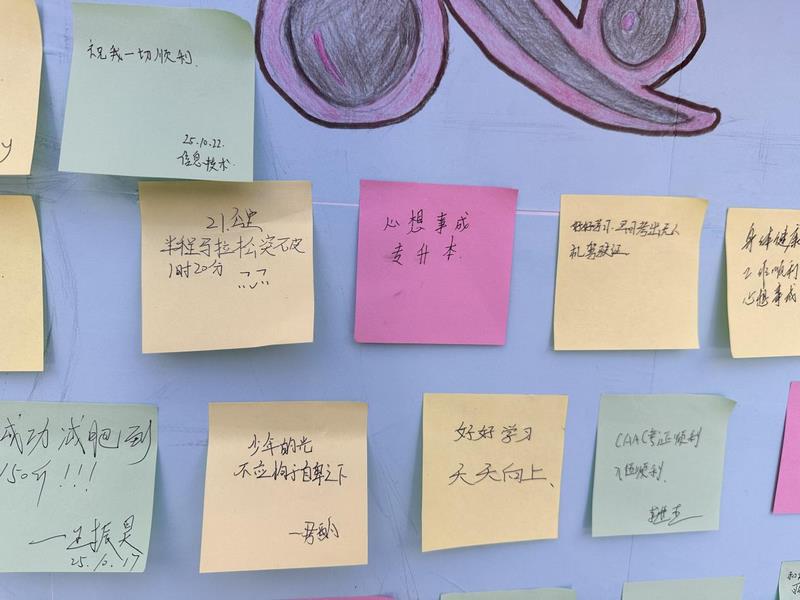 祝我一切顺利.
25.10.22.
信息技术.
21.公里
半程马拉松突破
1时20分
心想事成
专升本.
好好学习,
机驾驶证
身体健康
工作顺利
心想事成
成功减肥到
150斤!!!
25.10.17
少年的光
不应拘于自卑之下
好好学习
天天向上、
CAAC考证顺利
顺利.
y